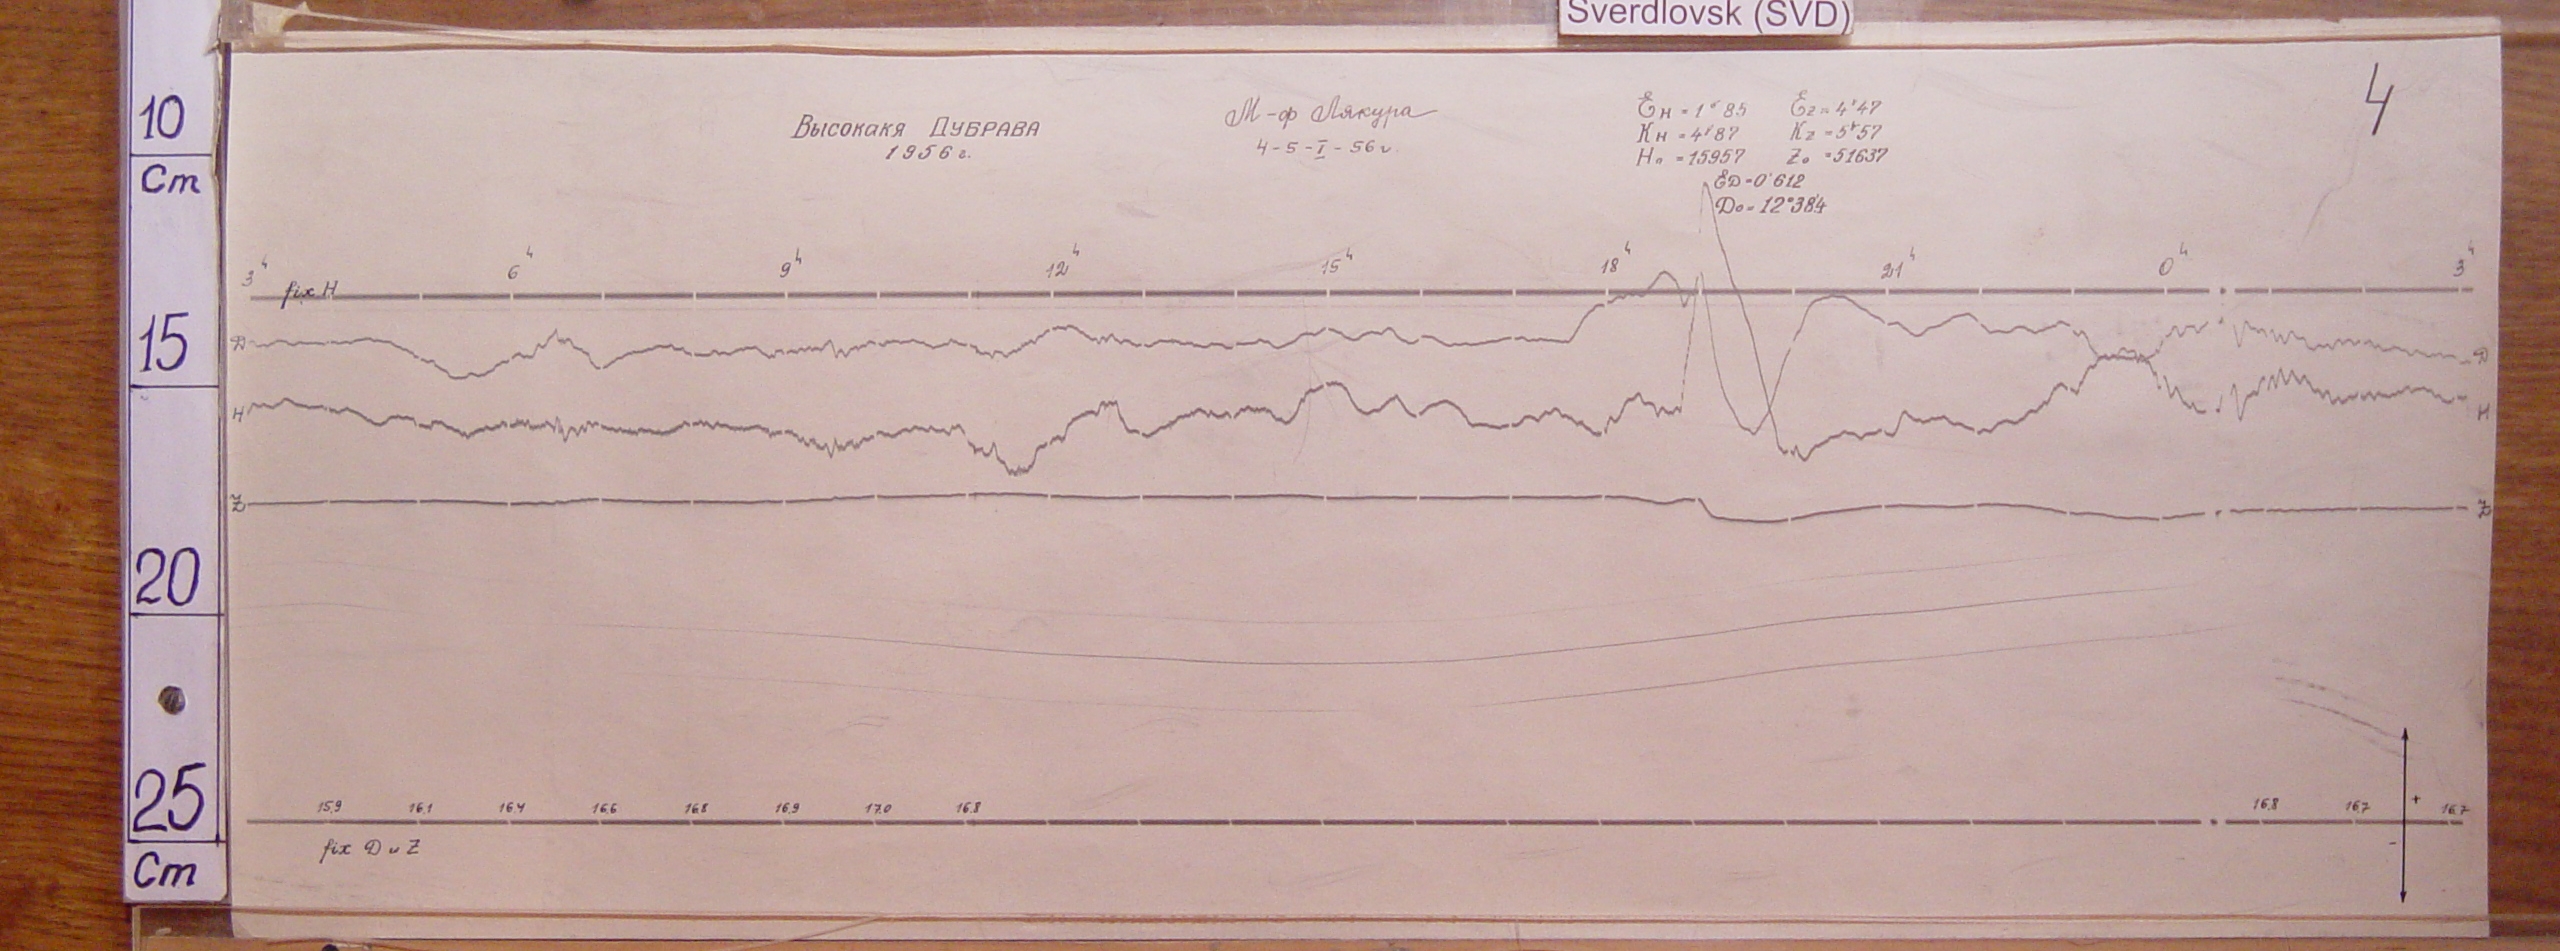 Sverdlovsk (SVD)
10
Cm
15
20
25
Cm
4
Высокая ДУБРАВА
1956 г.
М-ф Лякура
4-5-I-56 г.
Ɛн = 1ᵞ85 Ɛz = 4ᵞ47
Kн = 4ᵞ87 Kz = 5ᵞ57
H₀ = 15957 Z₀ = 51637
ƐD = 0'612
D₀ = 12°38'4
3ч 6ч 9ч 12ч 15ч 18ч 21ч 0ч 3ч
fix H
D D
H H
Z Z
15.9 16.1 16.4 16.6 16.8 16.9 17.0 16.8 16.8 16.7 16.7
+
-
fix D и Z